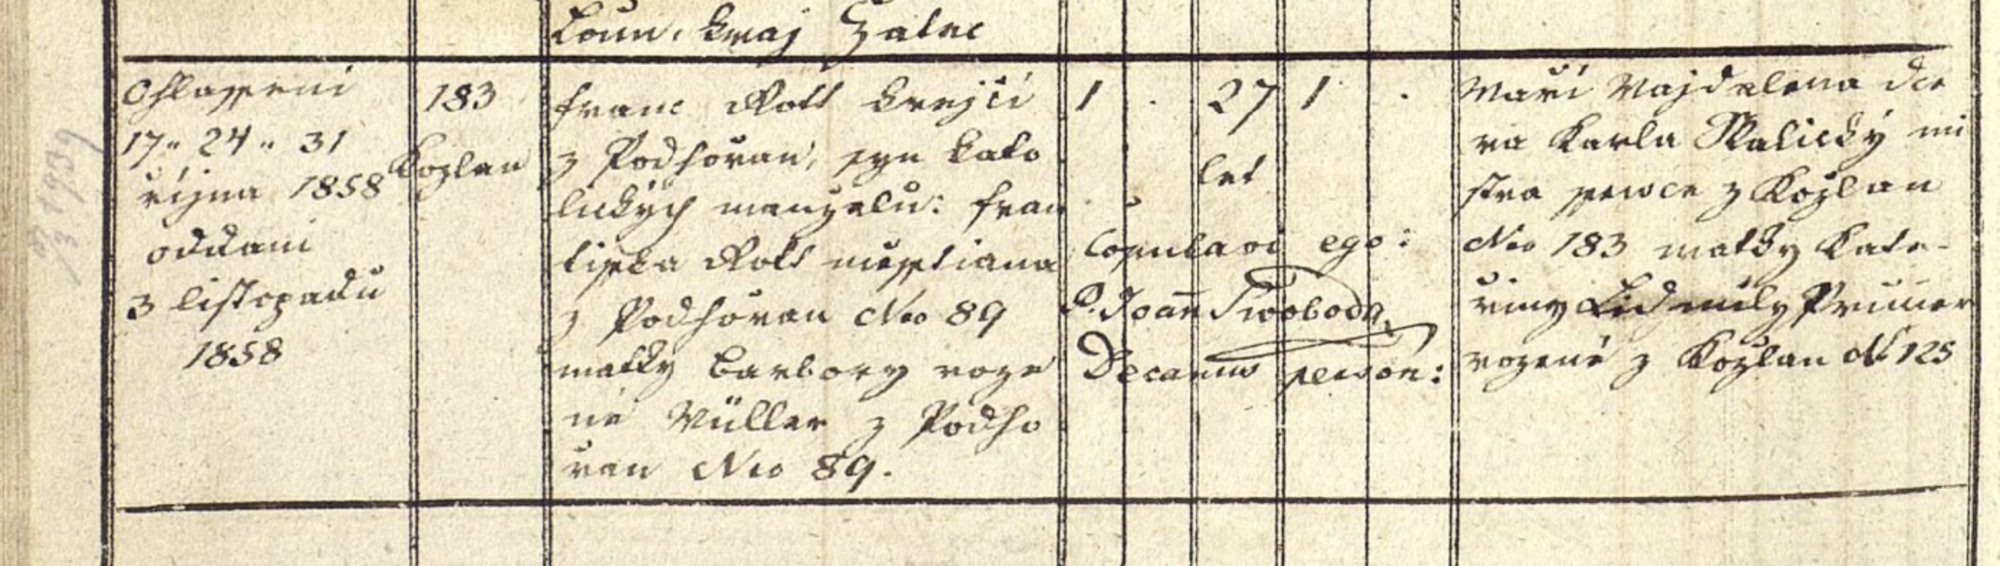 Loun, kraj Zatec
Ohlasseni
17" 24" 31
řijna 1858
oddani
3 listopadu
1858
183
Kozlan
Franc Rott krejči
z Podhořan, syn kato
lických manzelu: Fran
tisska Rott messtiana
z Podhořan Nro 89
matky Barbory roze
né Müller z Podho
řan Nro 89.
1 . 27 1 .
let
Copulavi ego:
P. Joañ Swoboda,
Decanus person:
Maři Majdalena dce
ra Karla Skalický mi
stra ssewce z Kozlan
Nro 183 matky Kate-
řiny Lidmily
rozené z Kozlan N 125